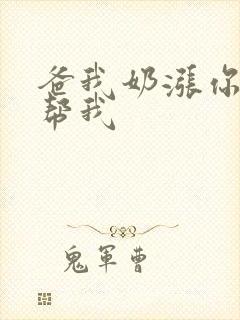 爸我奶涨你
帮我
鬼军曹